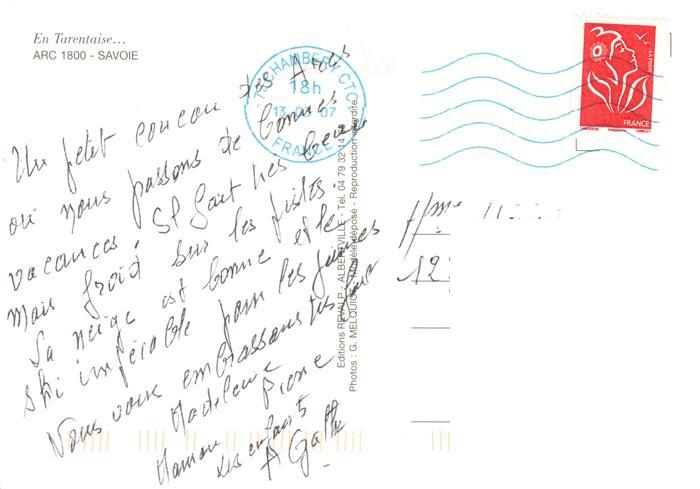 En Tarentaise...
ARC 1800 - SAVOIE
Un petit coucou des Arcs
où nous passons de bonnes
vacances, il fait très beau
mais froid sur les pistes.
La neige est bonne et le
ski impécable pour les jeunes
Nous vous embrassons très fort
Madeleine Pierre
Maman
Les enfants
A
73 CHAMBERY CTC
18h
13-03-07
FRANCE
Editions REVALP - ALBERTVILLE - Tél. 04 79 32 14
Photos : G. MELQUIOT - Modèle déposé - Reproduction interdite.
LA POSTE
FRANCE
Mme
12